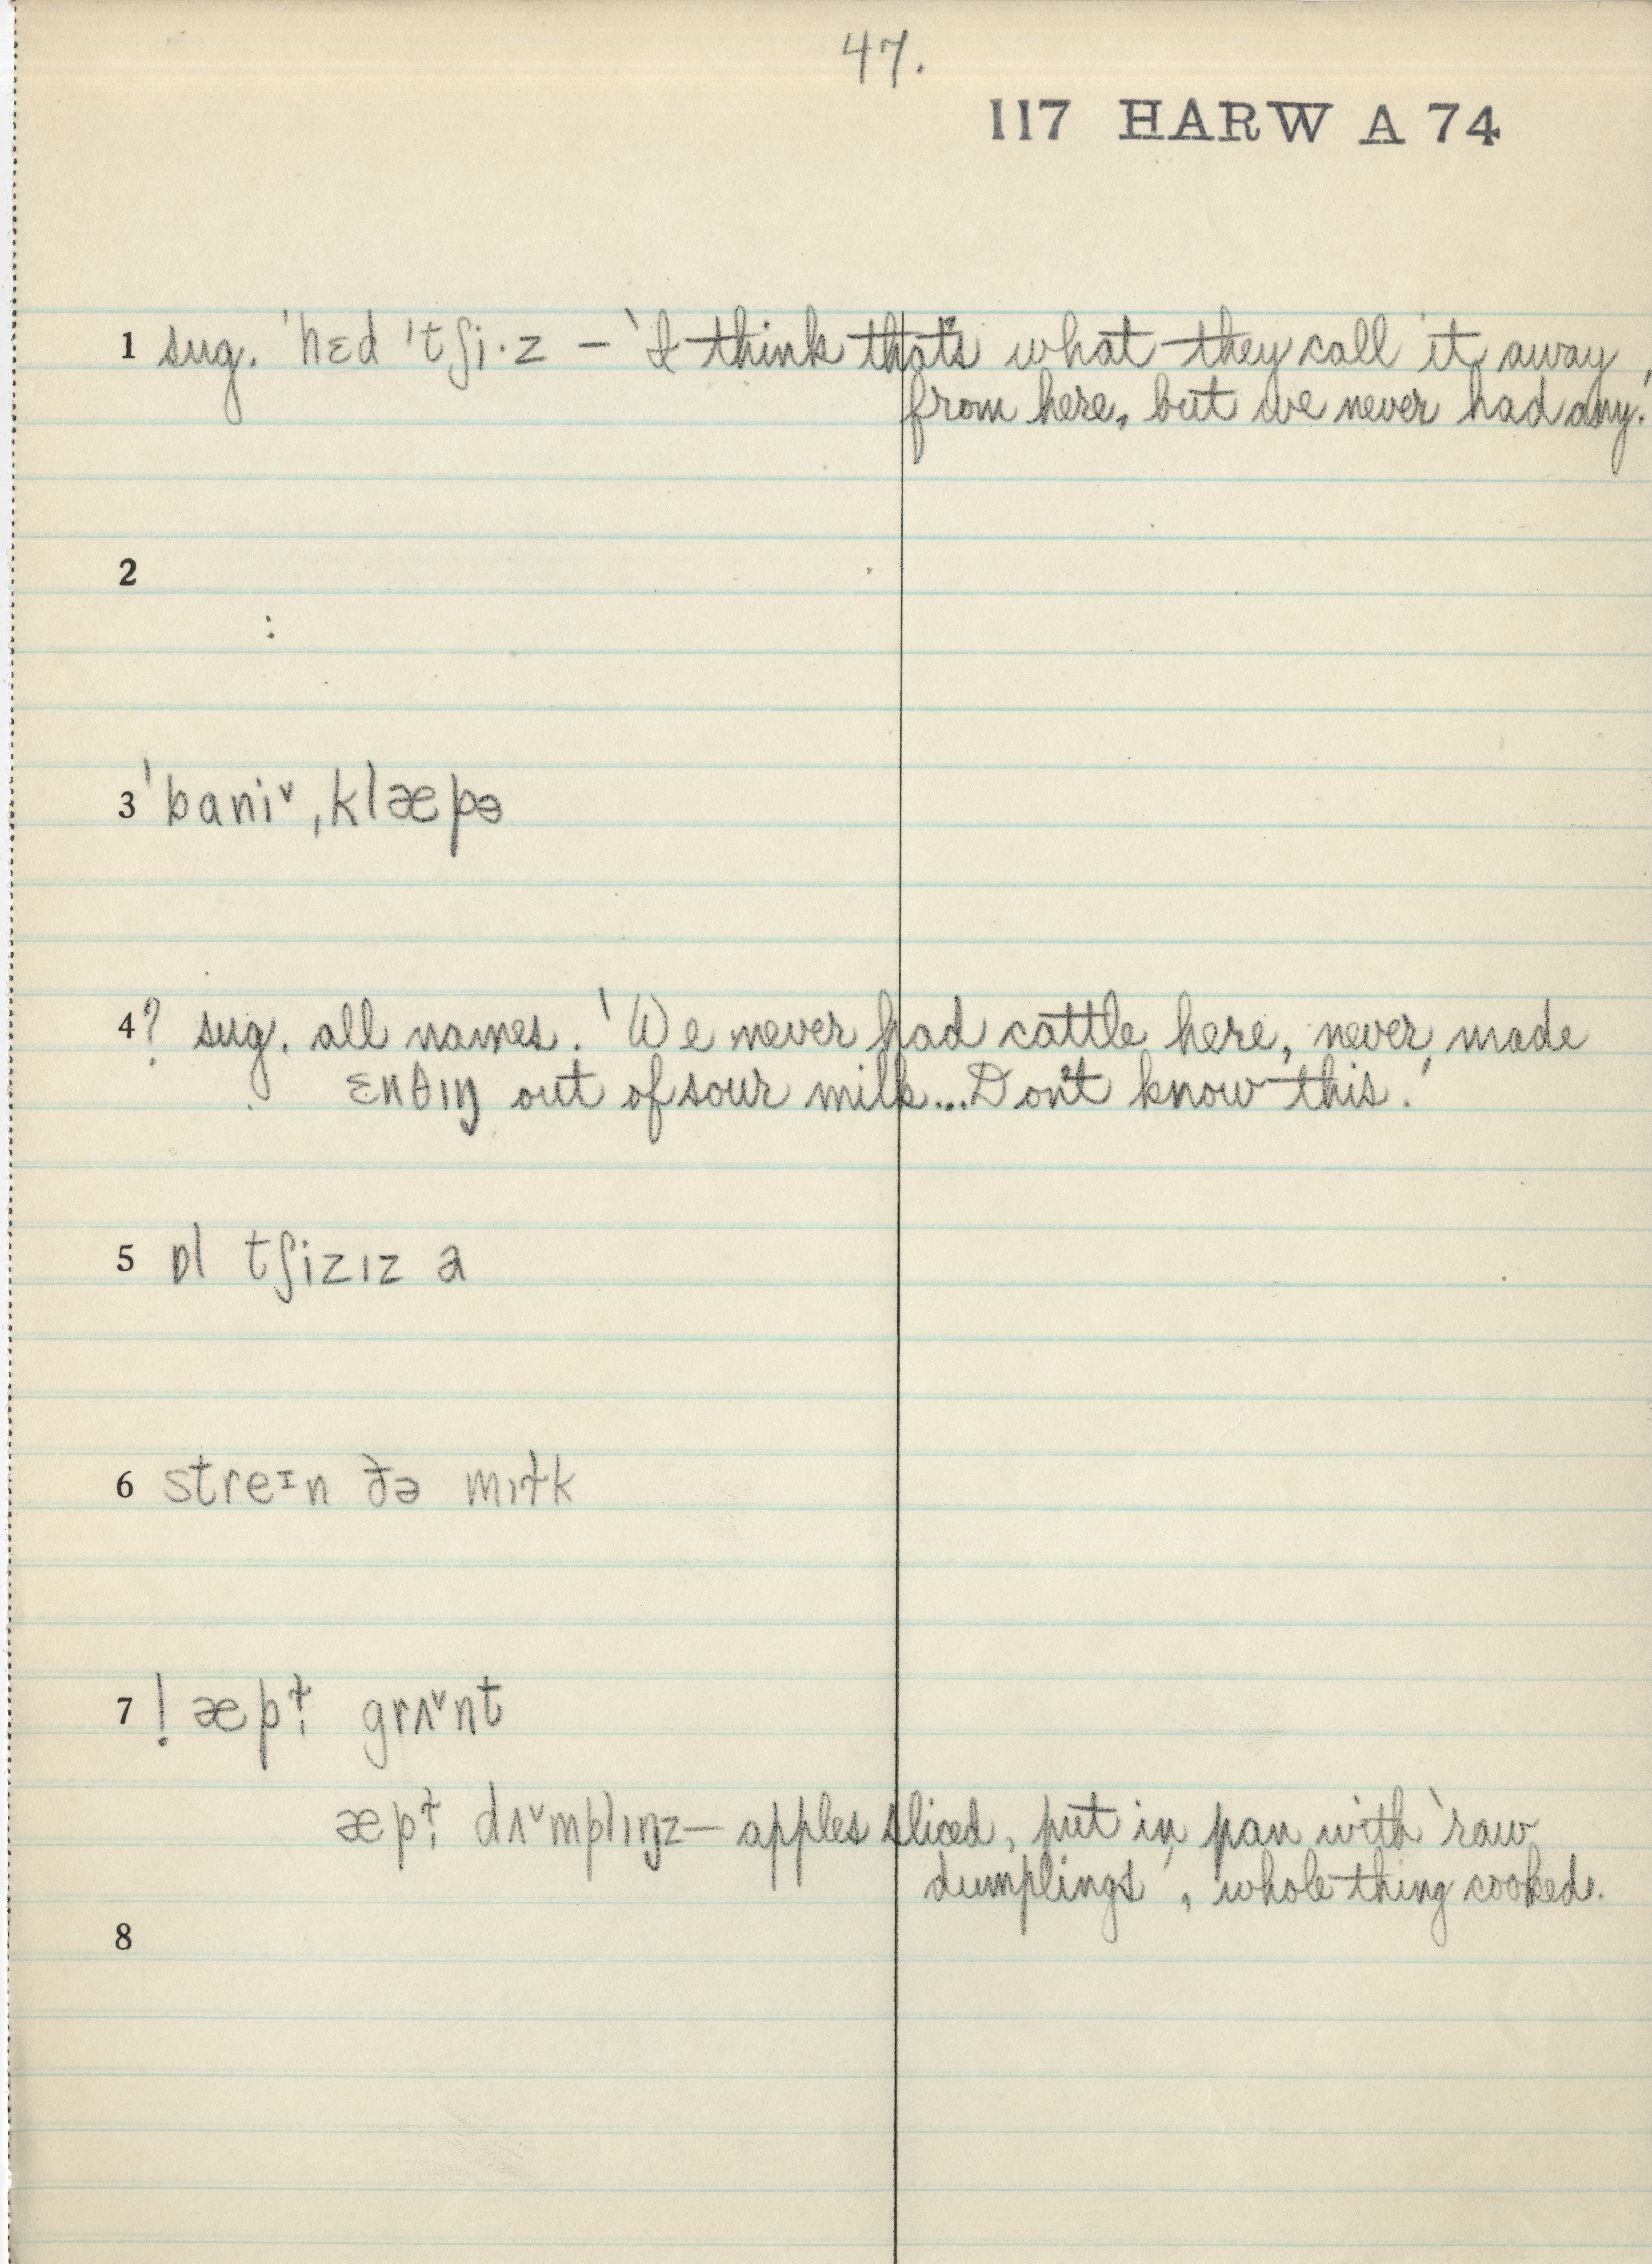 47.
117 HARW A 74
1 sug. ˈhɛd ˈtʃi·z – 'I think that's what they call it away
from here, but we never had any.'
2
:
3 ˈbaniˇ ˌklæpə
4 ? sug. all names. 'We never had cattle here, never made
ɛnθɪŋ out of sour milk...Don't know this.'
5 ɒl tʃizɪz a
6 streɪn ðə mɪɫk
7 ! æpɫ̩ grʌˇnt
æpɫ̩ dʌˇmplɪŋz – apples sliced, put in pan with 'raw
dumplings', whole thing cooked.
8